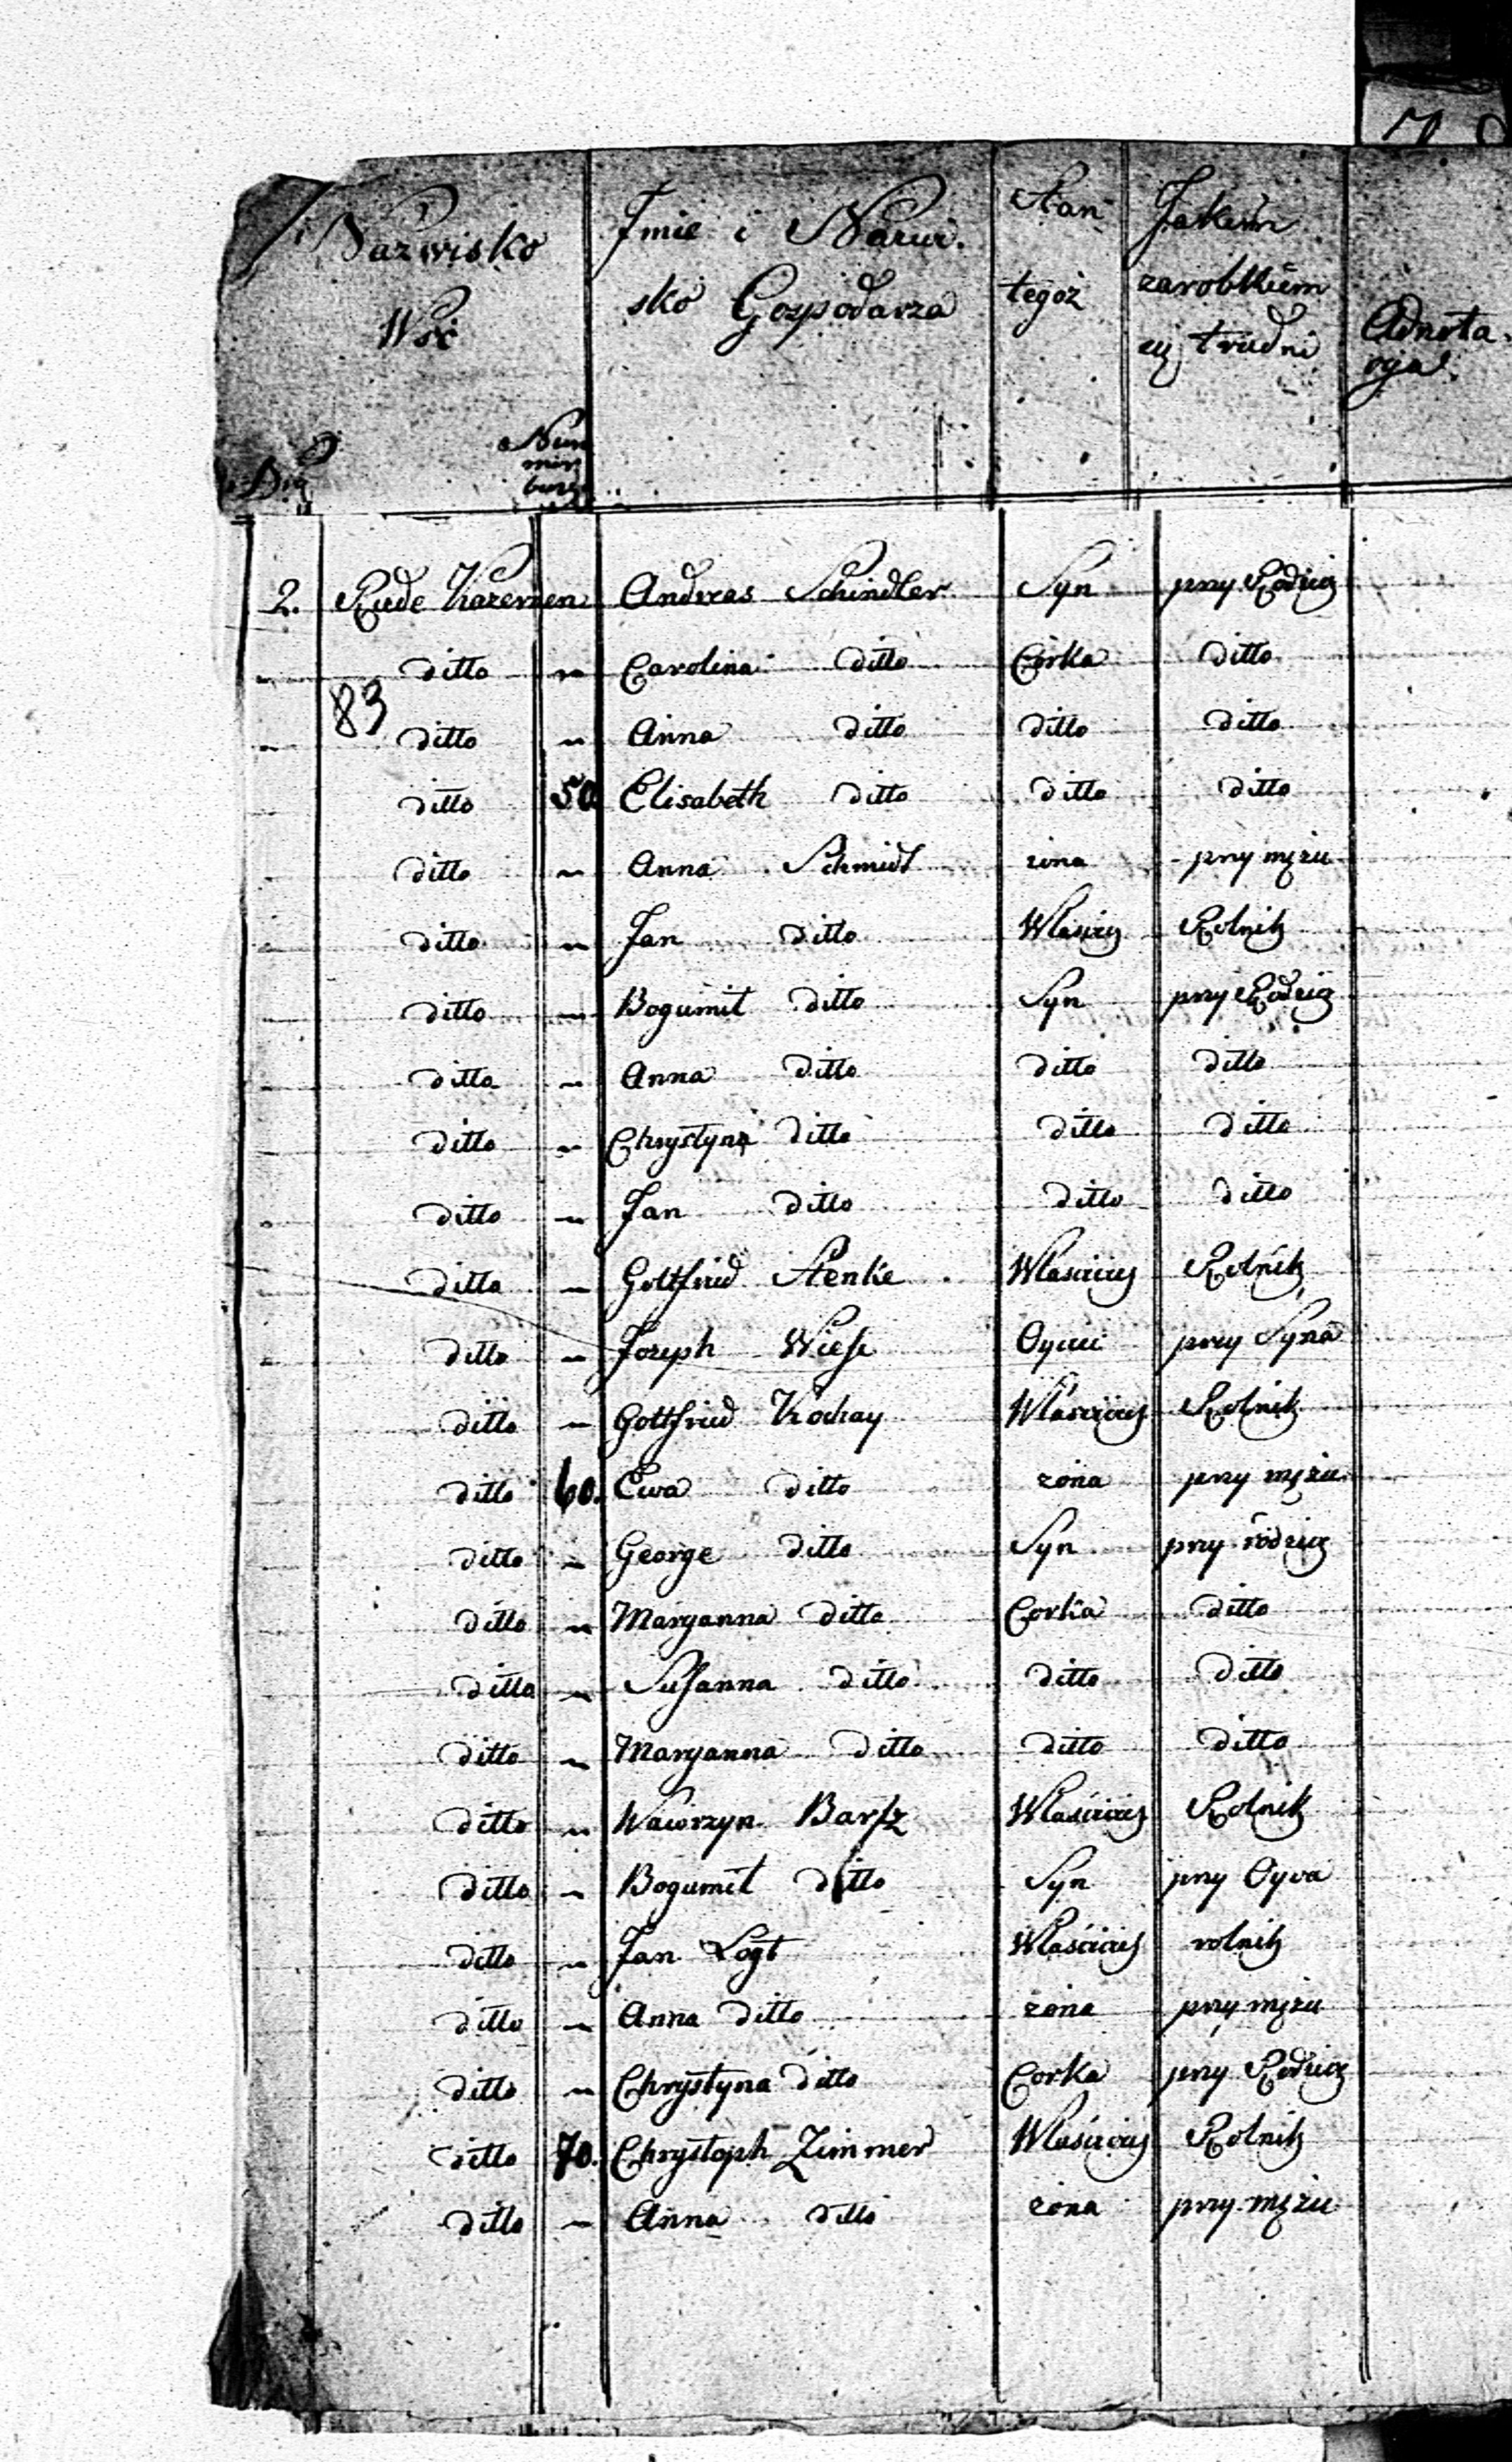 Nazwisko
Wsi
Imie i Nazwi-
sko Gospodarza
Stan
tegoż
Jakim
zarobkiem
się trudni
Adnota-
cya
2. Rude Kozemen Andreas Schindler Syn przy Rodzicz
ditto " Carolina ditto Córka ditto
83
ditto " Anna ditto ditto ditto
ditto 50 Elisabeth ditto ditto ditto
ditto " Anna Schmidt żona przy mężu
ditto " Jan ditto Właściciel Rolnik
ditto " Bogumil ditto Syn przy Rodzicz
ditto " Anna ditto ditto ditto
ditto " Chrystyna ditto ditto ditto
ditto " Jan ditto ditto ditto
ditto " Gottfried Stenke Właściciel Rolnik
ditto " Joseph Wiese Oyciec przy Syna
ditto " Gottfried Kochay Właściciel Rolnik
ditto 60. Ewa ditto żona przy mężu
ditto " George ditto Syn przy rodzicz
ditto " Maryanna ditto Corka ditto
ditto " Susanna ditto ditto ditto
ditto " Maryanna ditto ditto ditto
ditto " Wawrzyn Barsz Właściciel Rolnik
ditto " Bogumił ditto Syn przy Oyca
ditto " Jan Logt Właściciel rolnik
ditto " Anna ditto żona przy mężu
ditto " Chrystyna ditto Corka przy Rodzicz
ditto 70. Chrystoph Zimmer Właściciel Rolnik
ditto " Anna ditto żona przy mężu